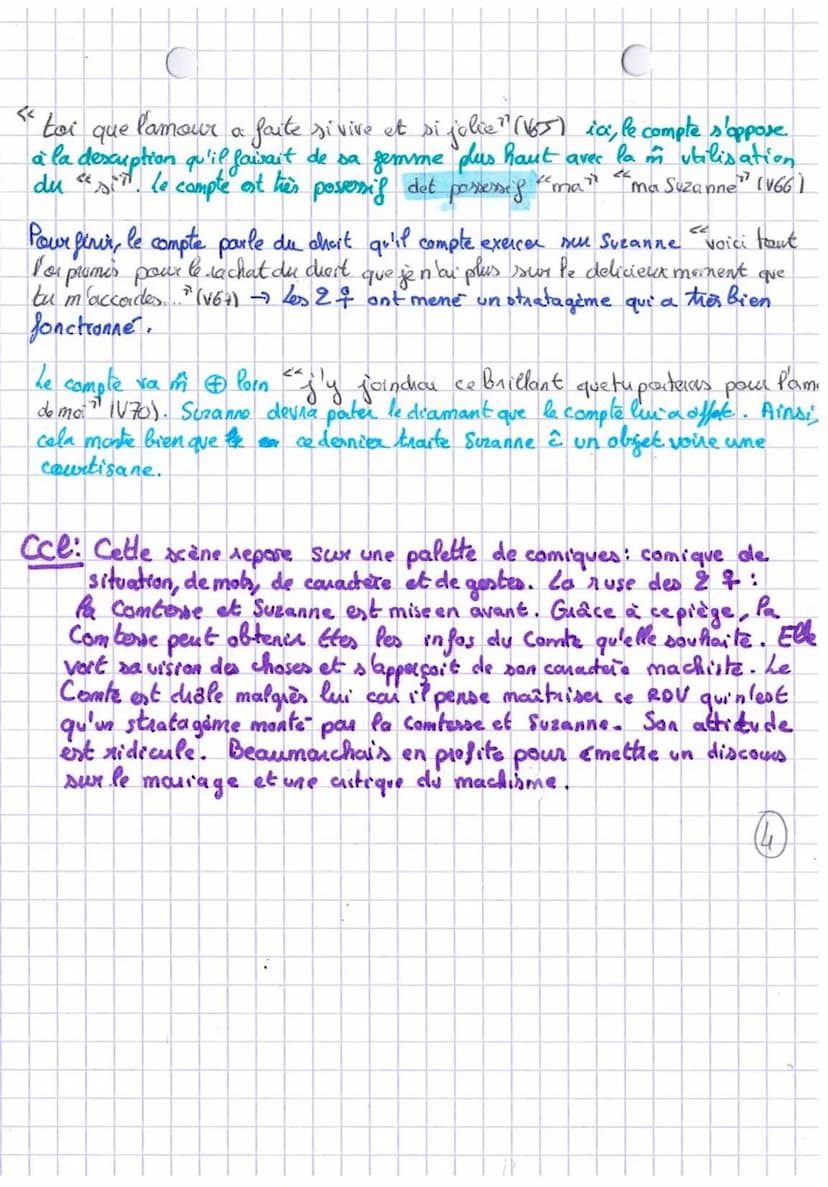 « toi que l'amour a faite si vive et si jolie" (V65) ici, le compte s'oppose
à la description qu'il faisait de sa femme plus haut avec la m̂ utilisation
du "si". Le compte est très possessif det possessif "ma" "ma Suzanne" (V66)
Pour finir, le compte parle du droit qu'il compte exercer sur Suzanne "voici tout
l'or promis pour le rachat du droit que je n'ai plus sur le delicieux moment que
tu m'accordes..." (V67) → Les 2 ♀ ont mené un stratagème qui a très bien
fonctionné.
Le compte va m̂ ⊕ loin "j'y joindrai ce Brillant que tu porteras pour l'am
de moi" (V70). Suzanne devra poter le diamant que le compte lui a offet. Ainsi,
cela monte bien que ce dernier traite Suzanne ĉ un objet voire une
courtisane.
Ccl: Cette scène repose sur une palette de comiques: comique de
situation, de mots, de caractère et de gestes. La ruse des 2 ♀ :
la Comtesse et Suzanne est mise en avant. Grâce à ce piège, la
Comtesse peut obtenir ttes les infos du Comte qu'elle souhaite. Elle
voit sa vision des choses et s'apperçoit de son caractère machiste. Le
Comte est drôle malgrès lui car il pense maîtriser ce RDV qui n'est
qu'un stratagème monté par la Comtesse et Suzanne. Son attitude
est ridicule. Beaumarchais en profite pour émettre un discours
sur le mariage et une critique du machisme.
4